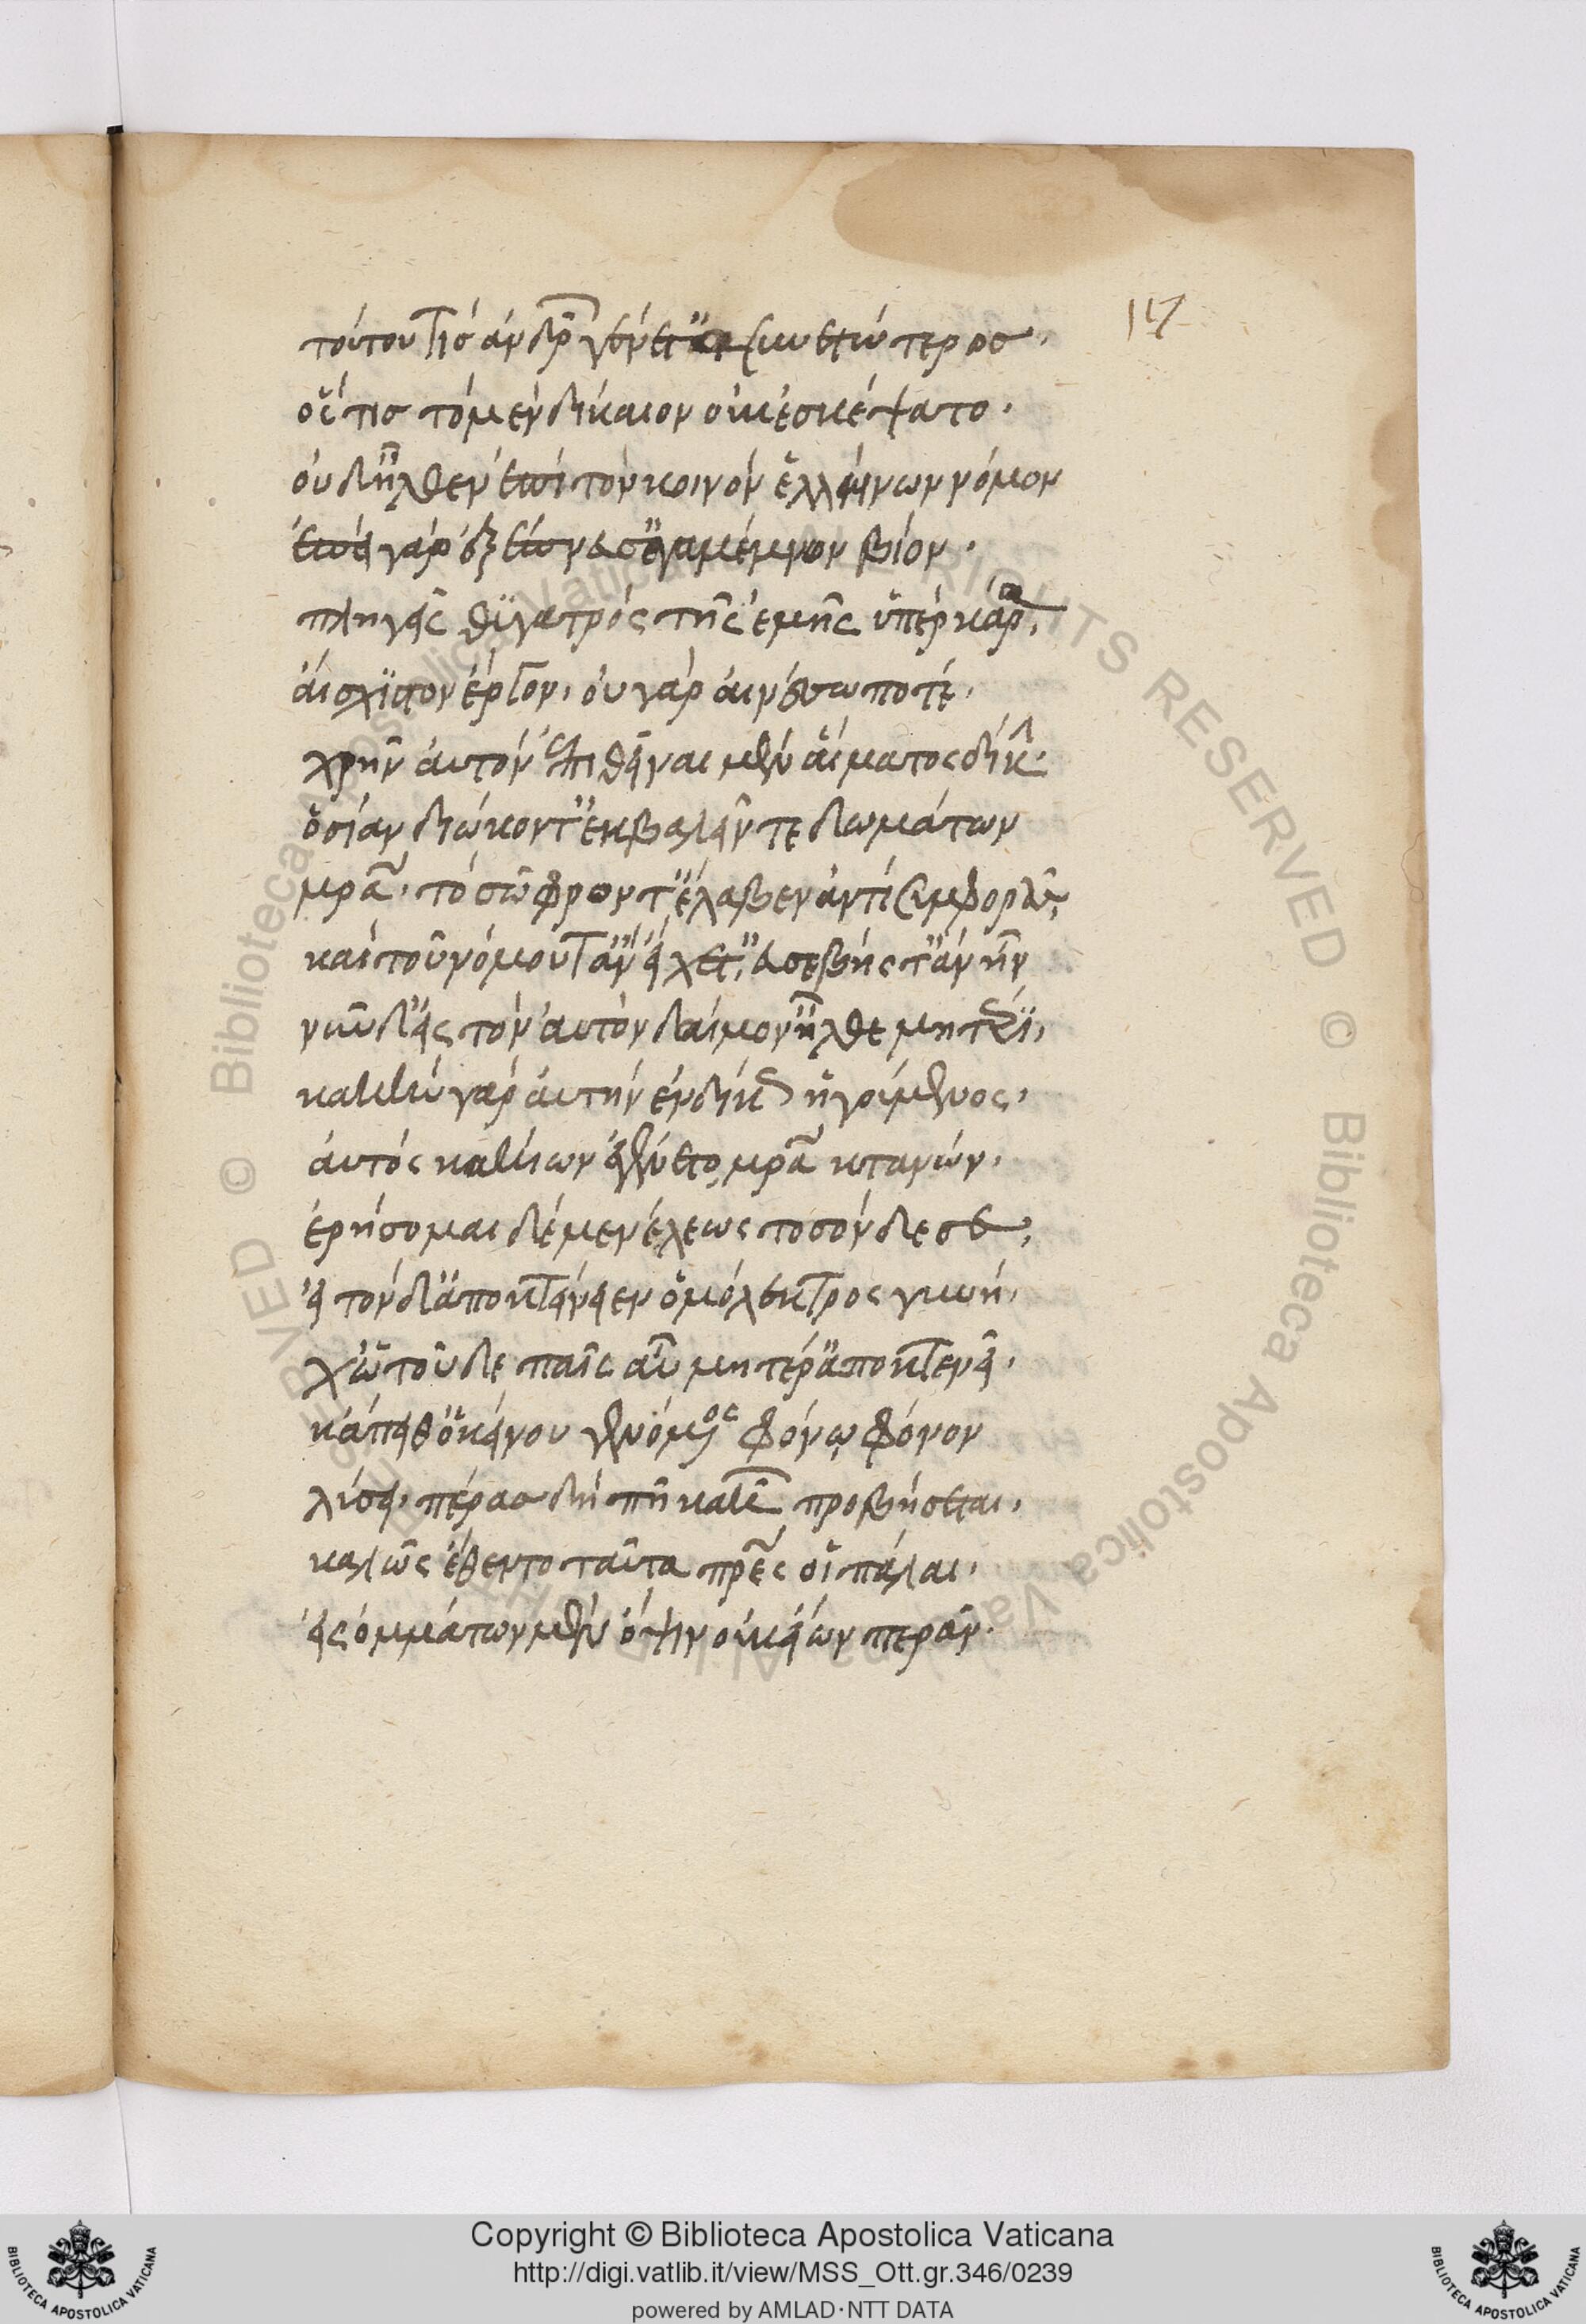 117
τούτου τίσ ἀνδρῶν γένετ' ἀσυνετώτεροσ.
ὅστισ τὸ μὲν δίκαιον οὐκ ἐσκέψατο.
οὐδ' ἦλθεν ἐπὶ τὸν κοινὸν ἑλλήνων νόμον
ἐπεὶ γὰρ ἐξέπνευσ' ἀγαμέμνων βίον.
πληγεὶς θυγατρὸς τῆς ἐμῆς ὑπὲρ κάρα,
αἴσχιστον ἔργον, οὐ γὰρ αἰνέσω ποτέ.
χρῆν αὐτὸν ἐπιθεῖναι μὲν αἵματος δίκην.
ὁσίαν διώκοντ' ἐκβαλεῖν τε δωμάτων
μρα. τὸ σῶφρον τ' ἔλαβεν ἀντὶ συμφορᾶς,
καὶ τοῦ νόμου τ' ἂν εἴχετ', εὐσεβής τ' ἂν ἦν
νῦν δ' εἰς τὸν αὐτὸν δαίμον' ἦλθε μητέρι,
κακὴν γὰρ αὐτὴν ἐνδίκως ἡγούμενος.
αὐτὸς κακίων ἐγένετο μρα κτανών.
ἐρήσομαι δὲ μενέλεως τοσόνδε σε,
εἰ τόνδ' ἀποκτείνειεν ὁμόλεκτρος γυνή.
χὠ τοῦδε παῖς αὖ μητέρ' ἀποκτενεῖ.
κἄπειθ' ὁ κείνου γενόμενος φόνῳ φόνον
λύσει. πέρασ δὴ πῆ κακῶν προβήσεται.
καλῶς ἔθεντο ταῦτα πρες οἱ πάλαι.
εἰς ὀμμάτων μὲν ὄψιν οὐκ εἴων περᾶν.
Copyright © Biblioteca Apostolica Vaticana
http://digi.vatlib.it/view/MSS_Ott.gr.346/0239
powered by AMLAD·NTT DATA